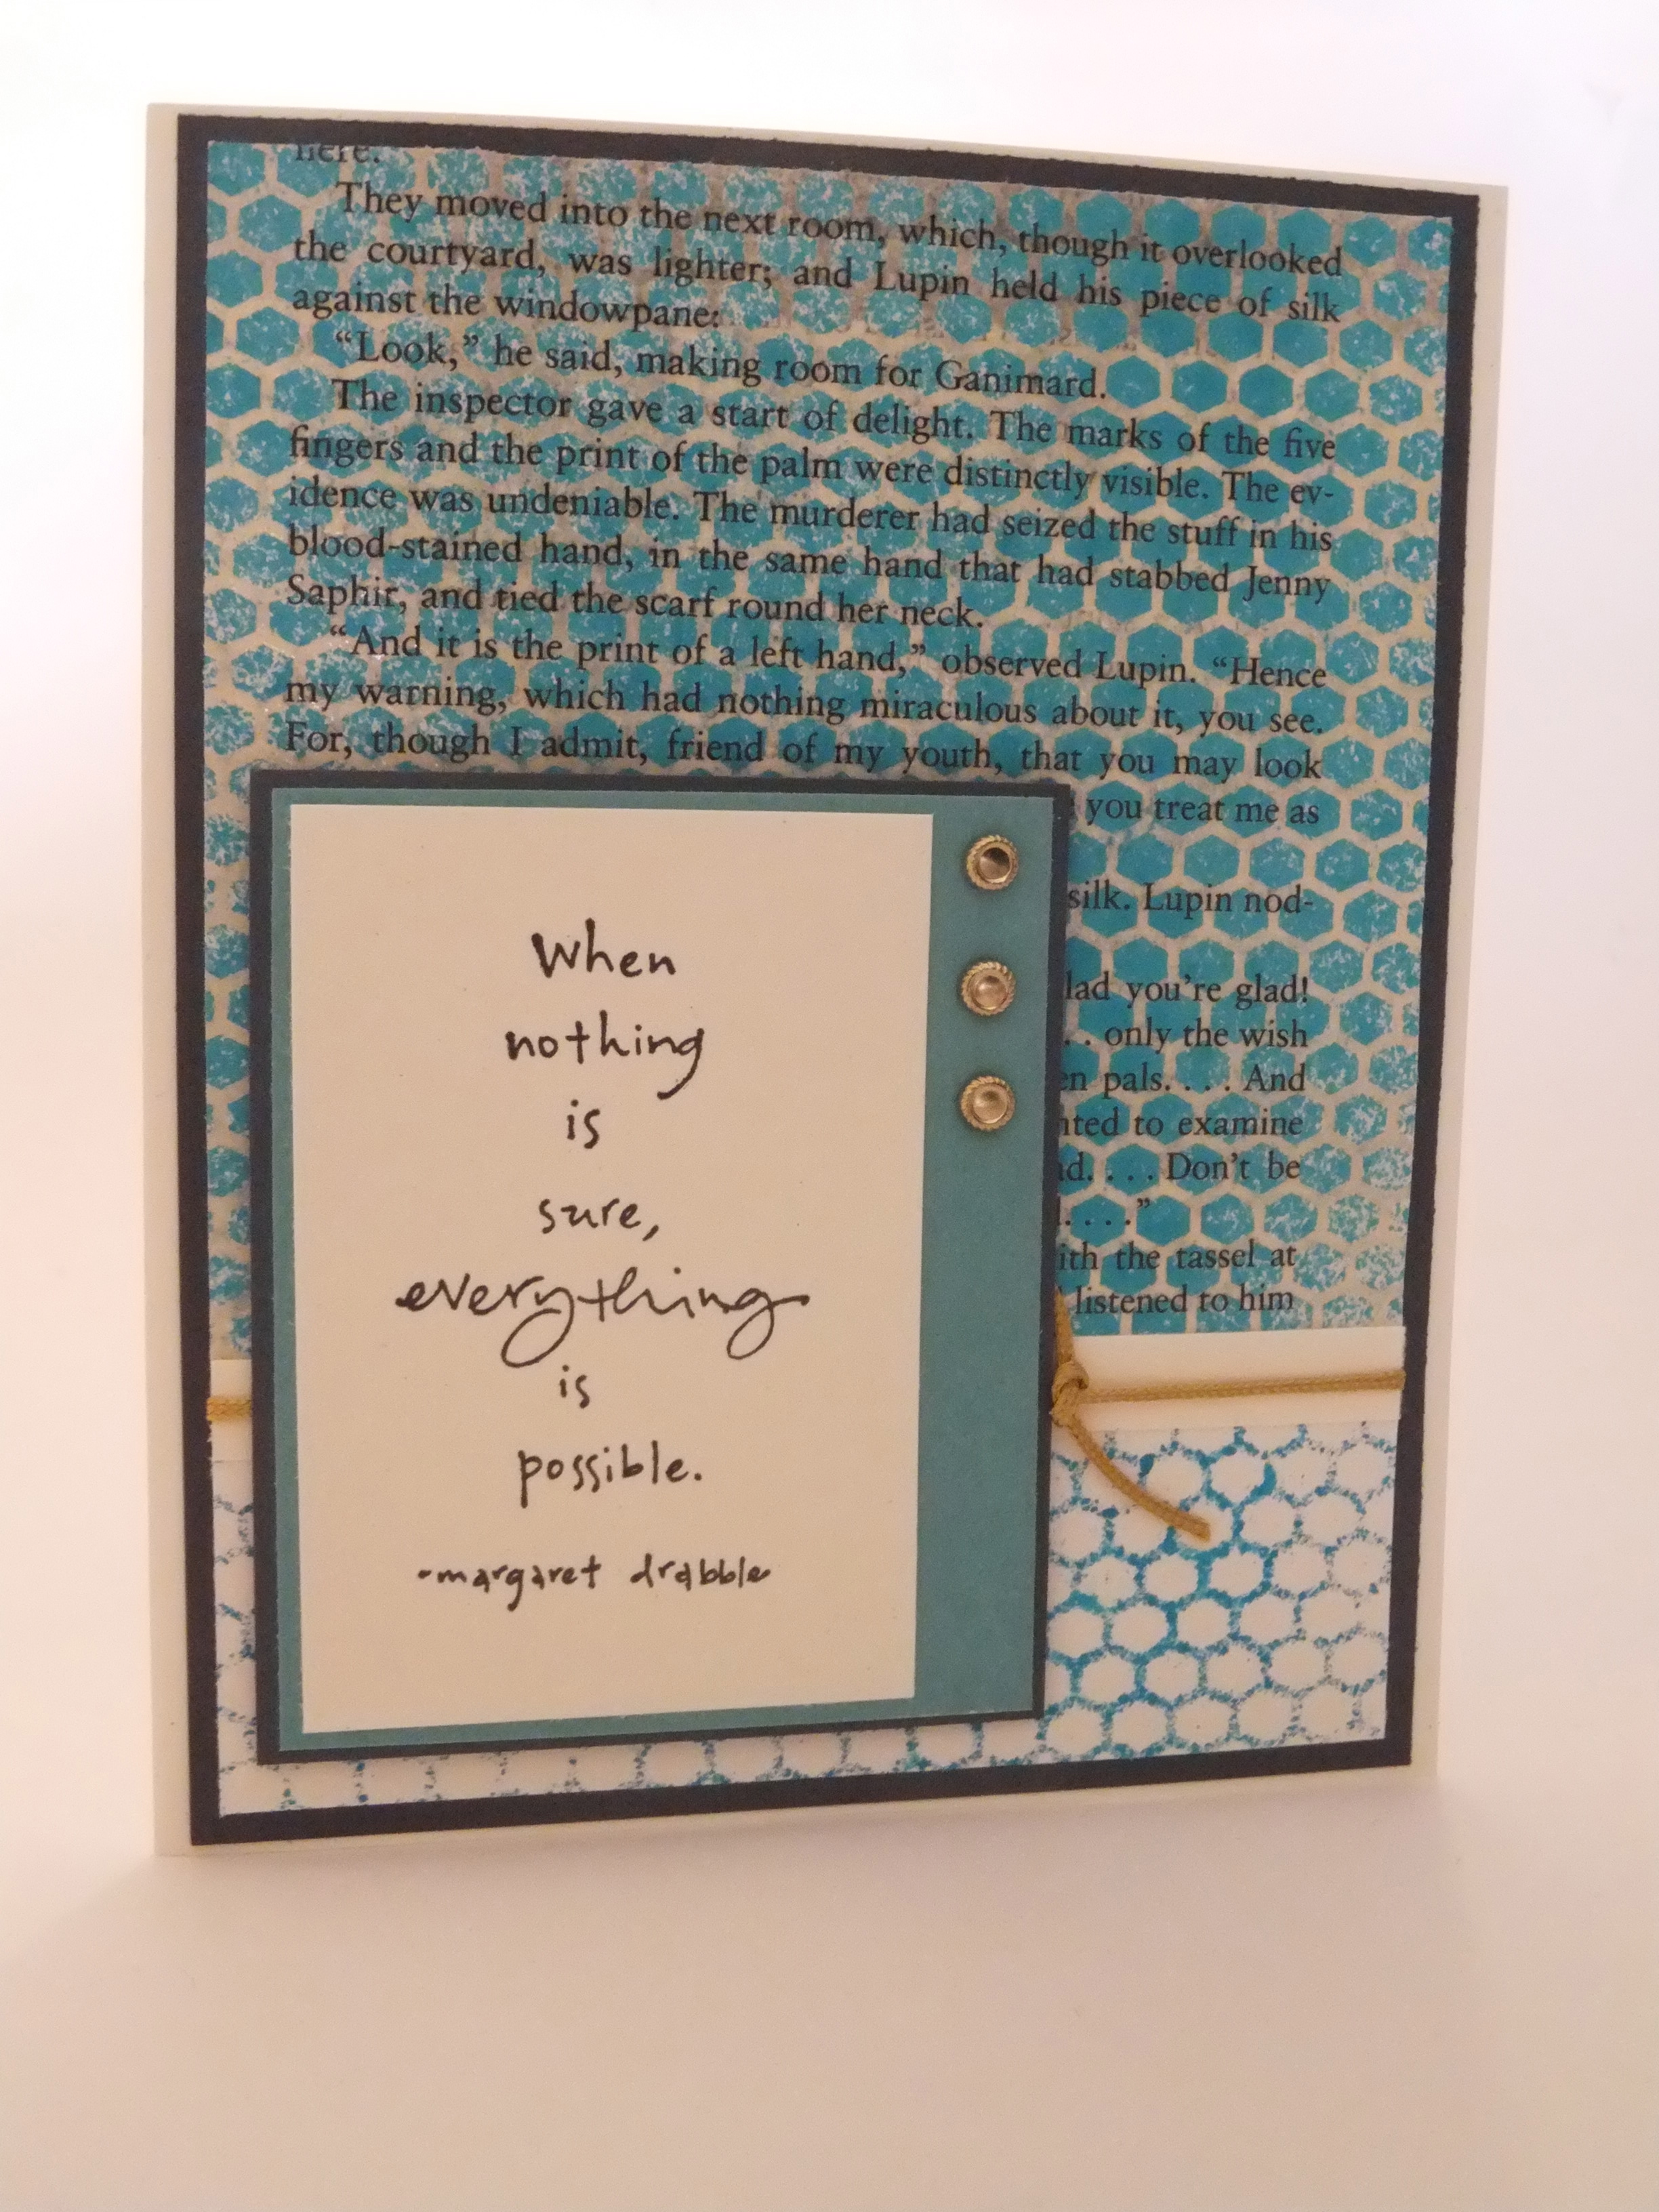 here.
They moved into the next room, which, though it overlooked
the courtyard, was lighter; and Lupin held his piece of silk
against the windowpane:
“Look,” he said, making room for Ganimard.
The inspector gave a start of delight. The marks of the five
fingers and the print of the palm were distinctly visible. The ev-
idence was undeniable. The murderer had seized the stuff in his
blood-stained hand, in the same hand that had stabbed Jenny
Saphir, and tied the scarf round her neck.
“And it is the print of a left hand,” observed Lupin. “Hence
my warning, which had nothing miraculous about it, you see.
For, though I admit, friend of my youth, that you may look
you treat me as
silk. Lupin nod-
lad you’re glad!
. . only the wish
en pals. . . . And
nted to examine
d. . . . Don’t be
. . . .”
ith the tassel at
listened to him
When
nothing
is
sure,
everything
is
possible.
-margaret drabble